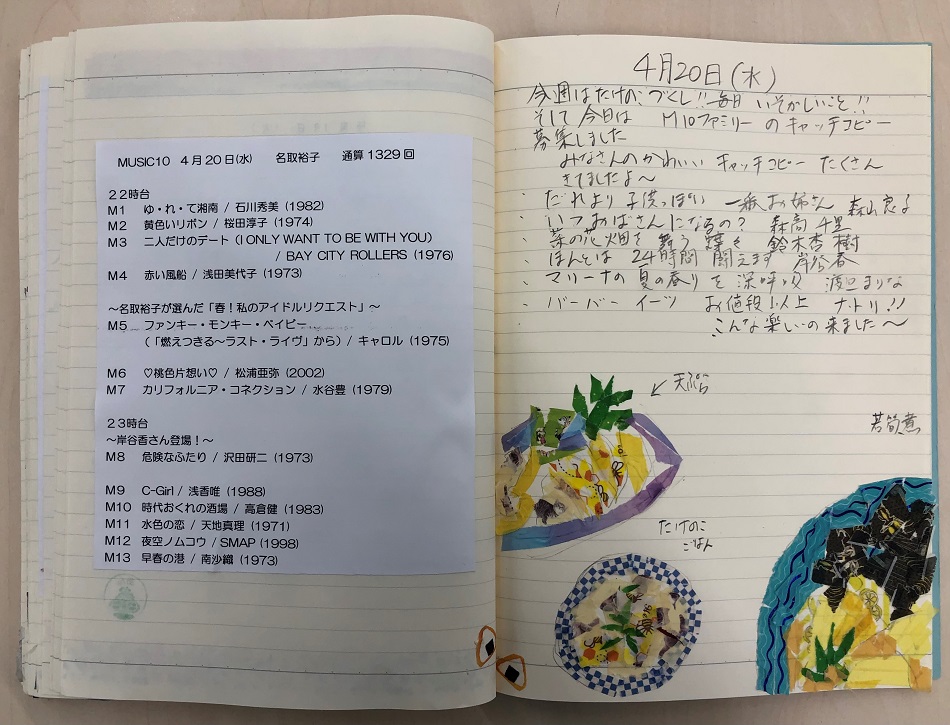 MUSIC10 4月20日(水) 名取裕子 通算1329回
22時台
M1 ゆ・れ・て湘南 / 石川秀美 (1982)
M2 黄色いリボン / 桜田淳子 (1974)
M3 二人だけのデート (I ONLY WANT TO BE WITH YOU)
/ BAY CITY ROLLERS (1976)
M4 赤い風船 / 浅田美代子 (1973)
～名取裕子が選んだ「春！私のアイドルリクエスト」～
M5 ファンキー・モンキー・ベイビー
(「燃えつきる～ラスト・ライヴ」から) / キャロル (1975)
M6 ♡桃色片想い♡ / 松浦亜弥 (2002)
M7 カリフォルニア・コネクション / 水谷豊 (1979)
23時台
～岸谷香さん登場！～
M8 危険なふたり / 沢田研二 (1973)
M9 C-Girl / 浅香唯 (1988)
M10 時代おくれの酒場 / 高倉健 (1983)
M11 水色の恋 / 天地真理 (1971)
M12 夜空ノムコウ / SMAP (1998)
M13 早春の港 / 南沙織 (1973)
4月20日(水)
今週はたけのこづくし!! 毎日 いそがしいこと!!
そして 今日は M10ファミリーのキャッチコピー
募集しました
みなさんのかわいい キャッチコピー たくさん
きてましたよ～
・だれより子供っぽい 一番お姉さん 森山良子
・いつおばさんになるの？ 森高千里
・菜の花畑を舞う蝶々 鈴木杏樹
・ほんとは 24時間 闘えます 岸谷香
・マリーナの夏の香りを深呼吸 渡辺まりな
・バーバー イーツ お値段以上 ナトリ!!
こんな楽しいの来ました～
天ぷら
若筍煮
たけのこ
ごはん